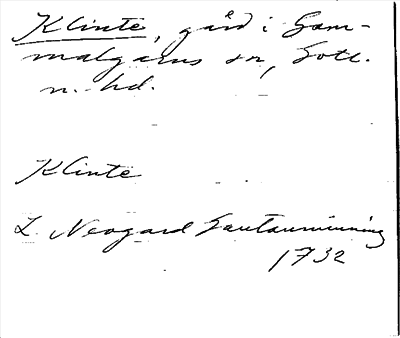 Klinte, gård i Gam-
malgarns sn, Gotl.
n. hd.
Klinte
L. Neogard Gautauminning
1732